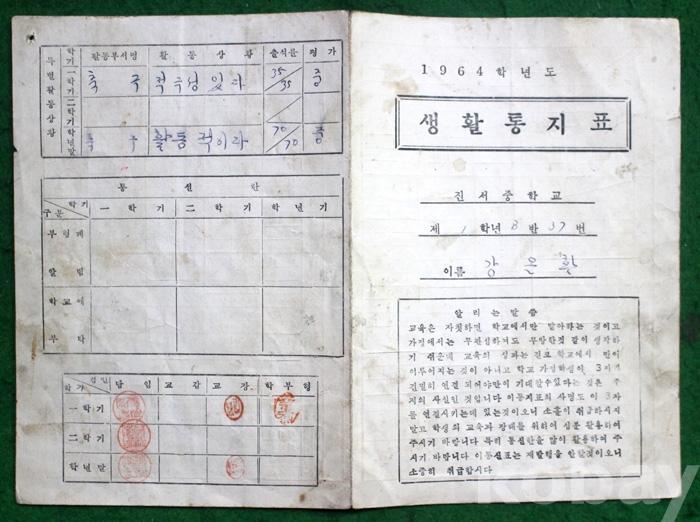 학기 활동부서명 활동상황 출석률 평가
특별활동상황
一학기 축구 적극성 있다 35/35 중
二학기
학년말 축구 활동적이다 70/70 중
통신란
학기 구분 一학기 二학기 학년기
부형께
알림
학교에
부탁
학기 담임 교감 교장 학부형
一학기
二학기
학년말
1964학년도
생활통지표
진서중학교
제 1 학년 8 반 37 번
이름 강은환
알리는말씀
교육은 자칫하면 학교에서만 맡아하는 것이고
가정에서는 무관심하여도 무방한것 같이 생각하
기 쉬운데 교육의 성과는 진로 학교에서만이
이루어지는 것이 아니고 학교 가정학생이 3
긴밀히 연결 되어야만이 기대할수있다는 것은 주
지의 사실인 것입니다 이통지표의 사명도 이 3자
를 연결시키는데 있는것이오니 소홀이 취급하시지
말고 학생의 교육과 장래를 위하여 십분 활용하여
주시기 바랍니다 특히 통신란을 많이 활용하여 주
시기 바랍니다 이통신표는 재발행을 안할것이오니
소중히 취급합시다
kobay